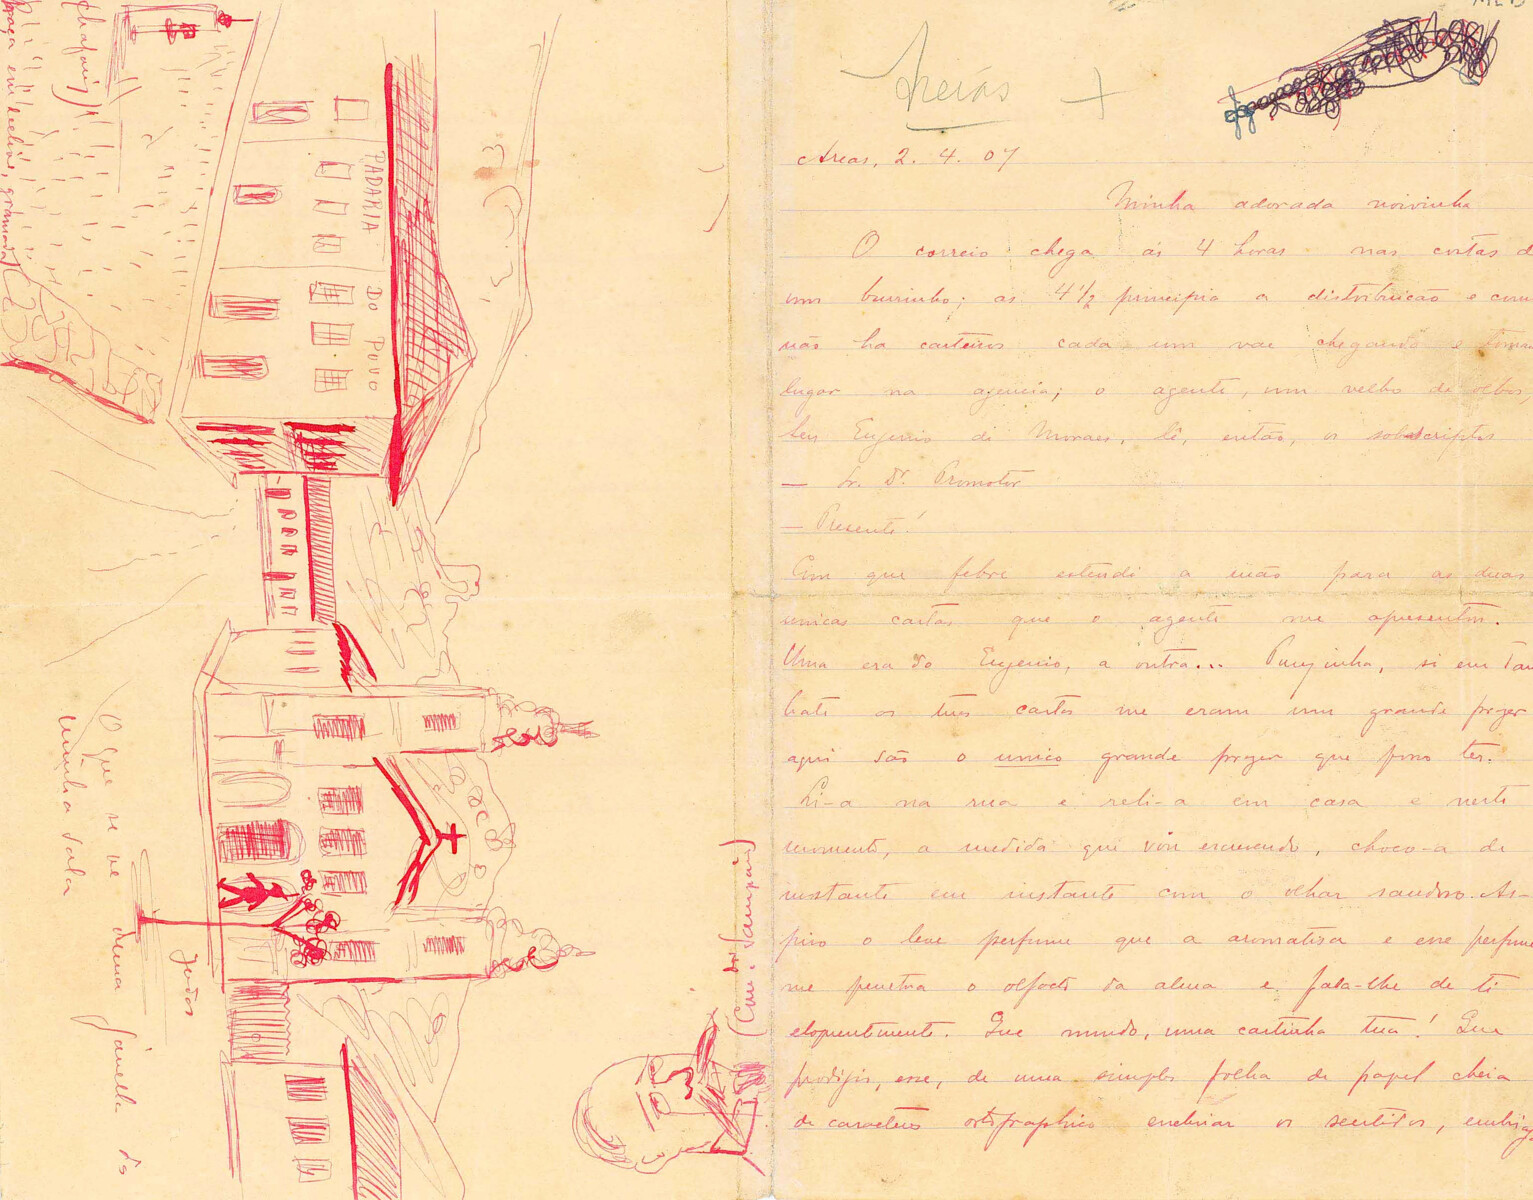 Areas, 2. 4. 07
Minha adorada noivinha
O correio chega ás 4 horas nas costas d
um burrinho; as 4 1/2 principia a distribuicão e com
não ha carteiros cada um vae chegando e toman
lugar na agencia; o agente, um velho de olhos,
seu Eugenio de Moraes, lê, então, os sobscriptos
— Sr. Dr. Promotor
— Presente!
Com que febre estendi a mão para as duas
unicas cartas que o agente me apresentou.
Uma era do Eugenio, a outra... Purezinha, si em Tau
baté as tuas cartas me eram um grande prazer
aqui são o unico grande prazer que posso ter.
Li-a na rua e reli-a em casa e neste
momento, a medida que vou escrevendo, choco-a de
instante em instante com o olhar saudoso. As-
piro o leve perfume que a aromatisa e esse perfume
me penetra o olfacto da alma e fala-lhe de ti
eloquentemente. Que mundo, uma cartinha tua! Que
prodigio, esse, de uma simples folha de papel cheia
de caracteres ortographico enebriar os sentidos, embriaga
PADARIA DO POVO
(chafariz)
Praça em declive, gramada
O que se vê duma janella da
minha sala
Judas
(Con. Sampaio)